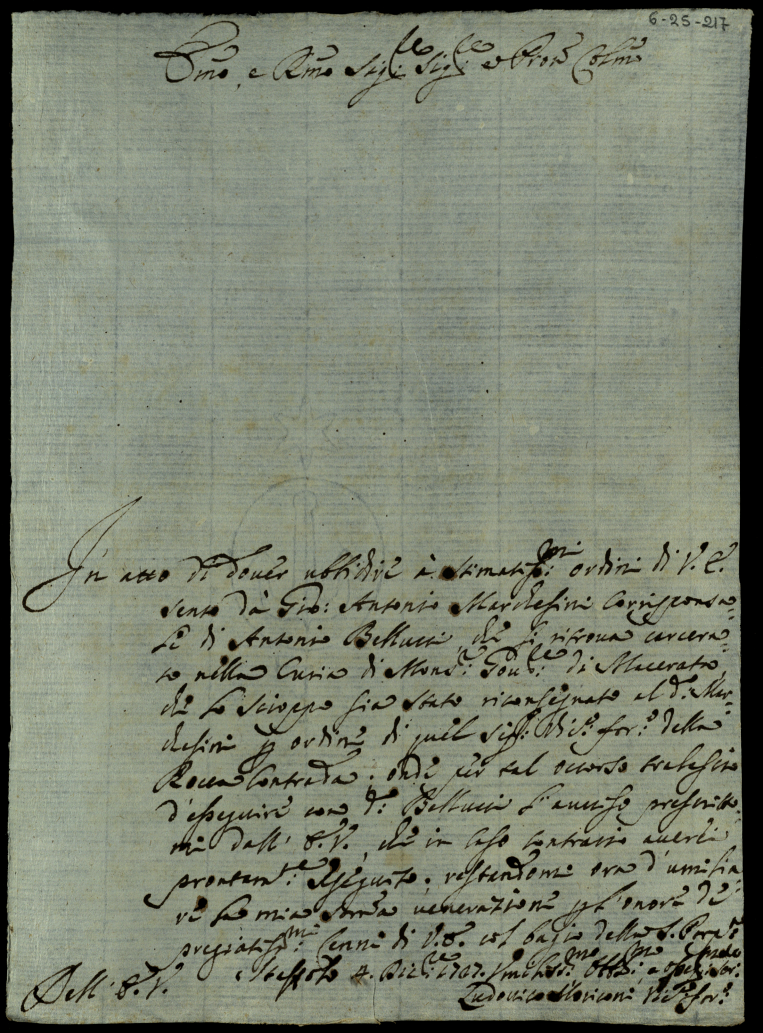 6-25-217
Emo, e Rmo Sig:re Sig:re e Prone Colmo
In atto di dover ubbidire à stimatiss:mi ordini di V. E.
sento dà Gio: Antonio Marchesini Corrisponsa-
le di Antonio Bellucci, che si ritrova carcera-
to nella Curia di Mons:r Gov:re di Macerata,
che lo Scioppo sia stato riconsegnato al d:o Mar-
chesini p ordine di quel Sig:r Vic:o for:o della
Rocca Contrada; onde per tal occorso tralascio
d'esseguire con d:o Bellucci l'avviso prescritto-
mi dall' E.V., che in caso contrario averei
prontam:te eseguito; restandomi ora d'umilia-
re la mia verenazione p l'onore de
pregiatiss:mi Cenni di V.E. col bagio della S. Porp:a
Dell' E.V. 4. Dic:re 1727.
Ludovico Moriconi Vic:o for:o